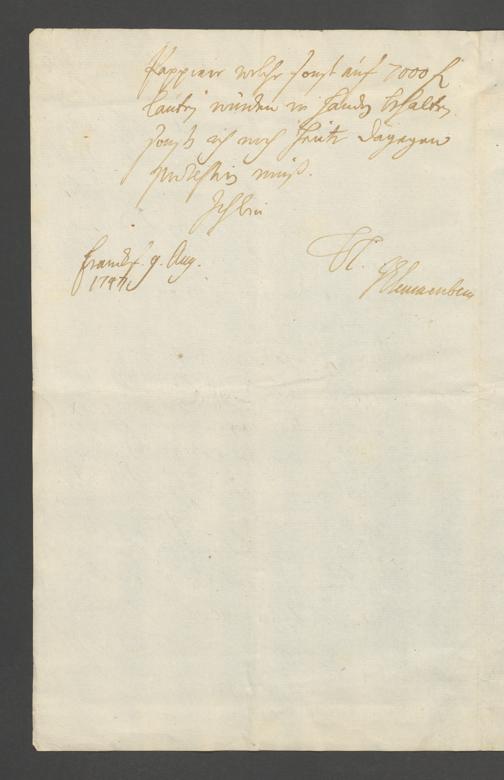 Pappier welche sonst auf 7000 f
lauten würden in Handen behalten
sonst ich noch heute dagegen
protestiren muß.
Ich bin
Franckf. 9. Aug.
174